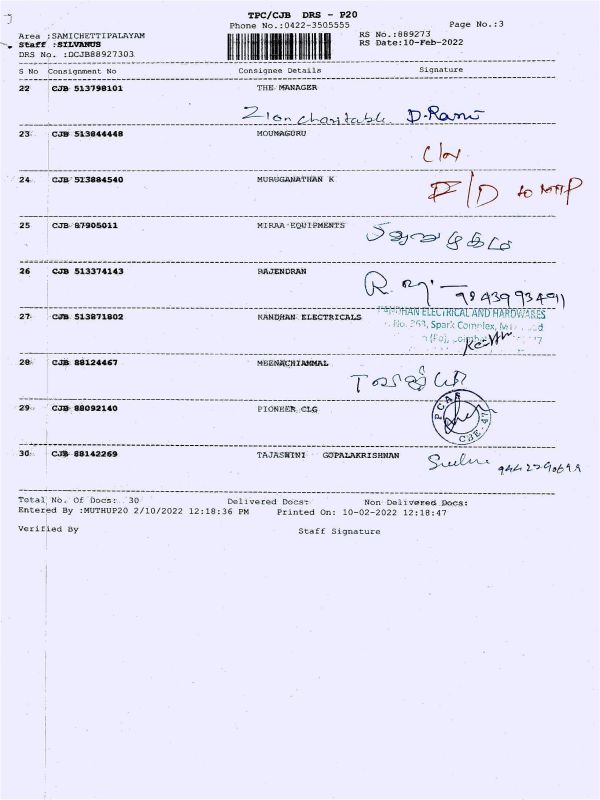 TPC/CJB DRS - P20
Phone No.:0422-3505555
Page No.:3
Area :SAMICHETTIPALAYAM
RS No.:889273
Staff :SILVANUS
RS Date:10-Feb-2022
DRS No. :DCJB88927303
S No Consignment No Consignee Details Signature
22 CJB 513798101 THE MANAGER
Zion charitable D.Rani
23 CJB 513844448 MOUNAGURU
24 CJB 513884540 MURUGANATHAN K
25 CJB 87905011 MIRAA EQUIPMENTS
26 CJB 513374143 RAJENDRAN
27 CJB 513871802 KANDHAN ELECTRICALS
ELECTRICAL AND HARDWARES
No. 263, Spark Complex,
28 CJB 88124467 MEENACHIAMMAL
29 CJB 88092140 PIONEER CLG
30 CJB 88142269 TAJASWINI GOPALAKRISHNAN
Total No. Of Docs: 30 Delivered Docs: Non Delivered Docs:
Entered By :MUTHUP20 2/10/2022 12:18:36 PM Printed On: 10-02-2022 12:18:47
Verified By Staff Signature